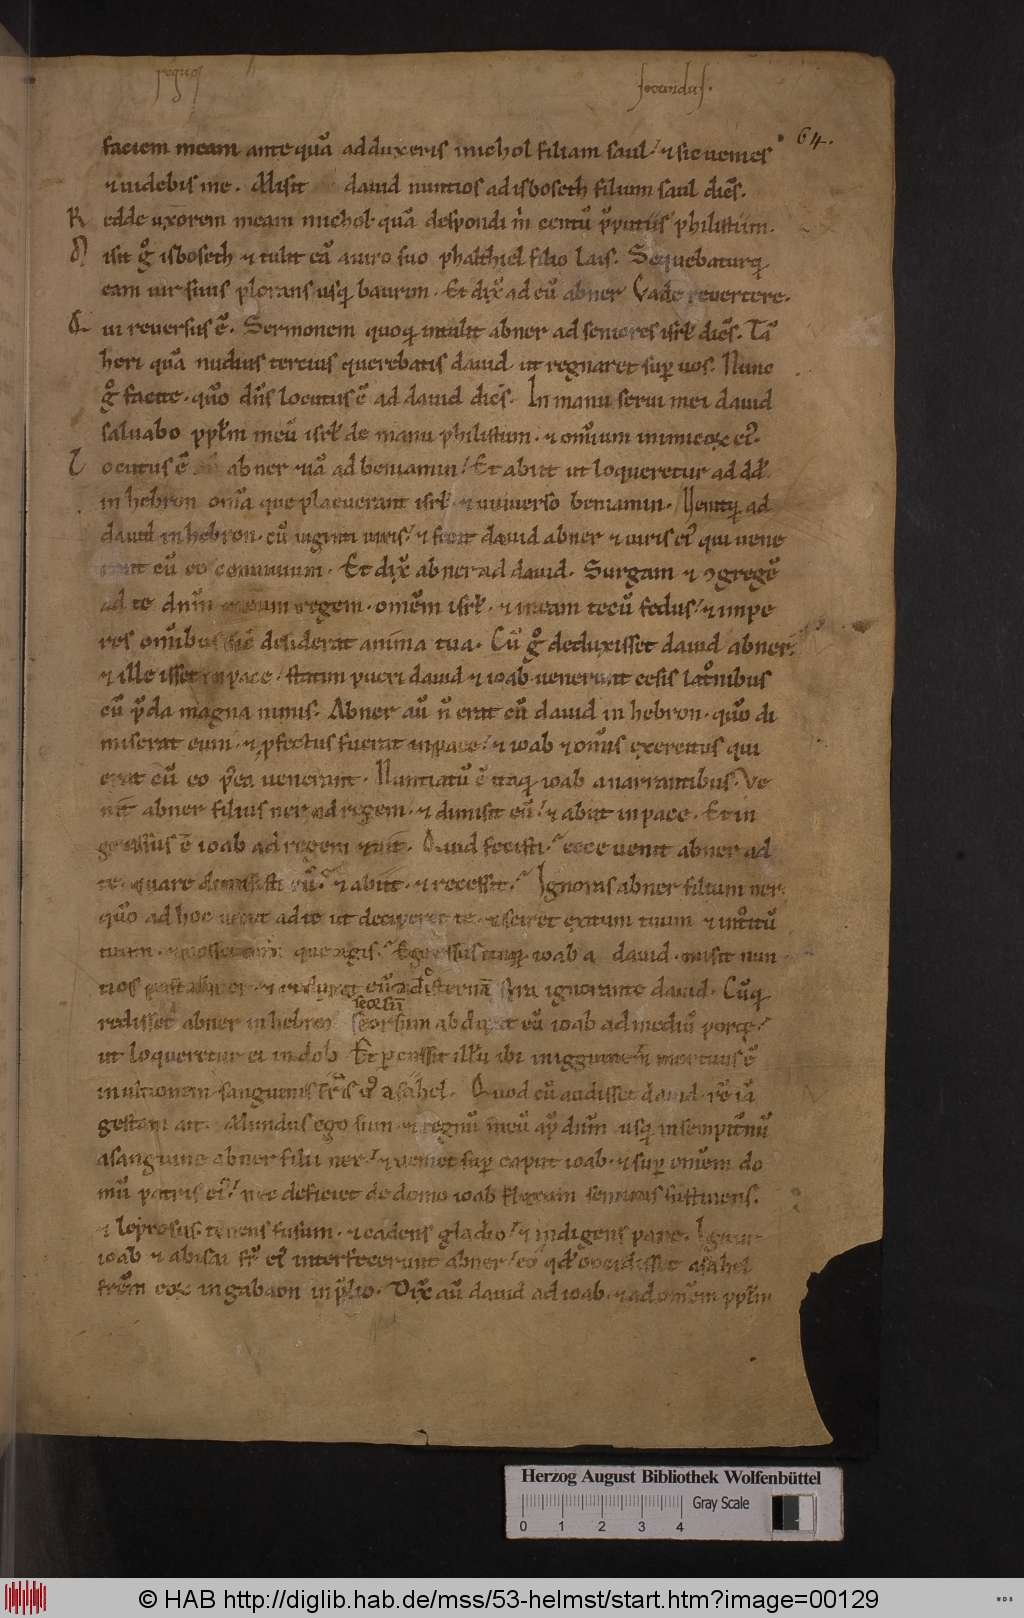 regum
secundus.
64.
faciem meam ante quā adduxeris michol filiam saul / ⁊ sic uenies
⁊ uidebis me. Misit dauid nuntios ad isboseth filium saul dicēs.
Redde uxorem meam michol quā despondi m̄ centū p̄putiis philistiim.
Misit gͦ isboseth ⁊ tulit eā a uiro suo phalthiel filio lais. Sequebaturq;
eam uir suus plorans usq; baurim. Et dix̄ ad eū abner Vade reuertere.
Qui reuersus ē. Sermonem quoq; intulit abner ad seniores isrł dicēs. Tā
heri quā nudius tercius querebatis dauid ut regnaret sup uos. Nunc
gͦ facite. quō dn̄s locutus ē ad dauid dicēs. In manu serui mei dauid
saluabo pp̄lm meū isrł de manu philistiim. ⁊ om̄ium inimicoꝝ ei᷒.
Locutus ē abner ⁊iā ad beniamin / Et abiit ut loqueretur ad dd̄.
in hebron om̄ia que placuerant isrł. ⁊ uniuerso beniamin. / Uenitq; ad
dauid in hebron. cū uiginti uiris / ⁊ fecit dauid abner ⁊ uiris ei᷒ qui uene
rant cū eo conuiuium. Et dix̄ abner ad dauid. Surgam ⁊ ꝯgregē
ad te dn̄m meum regem. omēm isrł. ⁊ ineam tecū fedus / ⁊ impe
res om̄ibus sic̄ desiderat anima tua. Cū gͦ deduxisset dauid abner.
⁊ ille isset in pace / statim pueri dauid ⁊ ioab uenerunt cesis latͦnibus
cū p̄da magna nimis. Abner aū n̄ erat cū dauid in hebron. quō di
miserat eum. ⁊ pfectus fuerat in pace / ⁊ ioab ⁊ om̄s exercitus qui
erat cū eo p̄ea uenerant. Nuntiatū ē itaq; ioab a narrantibus. Ve
nit abner filius ner ad regem. ⁊ dimisit eū / ⁊ abiit in pace. Et in
gressus ē ioab ad regem ⁊ ait. Quid fecisti / ecce uenit abner ad
te. quare dimisisti eū. ⁊ abiit. ⁊ recessit / Ignoras abner filium ner.
quō ad hoc uenit ad te ut deciperet te. ⁊ sciret exitum tuum ⁊ intͦitū
tuum. que agis. Egressus itaq; ioab a dauid. misit nun
tios post abner. ⁊ reduxit eū a cisterna syra ignorante dauid. Cūq;
seorsū
redisset abner in hebron seorsum abduxit eū ioab ad mediū porte /
ut loqueretur ei in dolo Et pcussit illū ibi in inguine ⁊ mortuus ē
in ultionem sanguinis fr̄is ei᷒ asahel. Quod cū audisset dauid. rē iā
gestam ait. Mundus ego sum. ⁊ regnū meū ap̄ dn̄m usq; in sempit̄nū
a sanguine abner filii ner / ⁊ ueniet sup caput ioab. ⁊ sup omēm do
mū patris ei᷒ / nec deficiet de domo ioab fluxum seminis sustinens.
⁊ leprosus. tenens fusum. ⁊ cadens gladio / ⁊ indigens pane. Igitur
ioab ⁊ abisai fr̄ ei᷒ interfecerunt abner / eo qd̄ occidisset asahel
frēm eoꝝ in gabaon in p̄lio. Dix̄ aū dauid ad ioab. ⁊ ad omēm pp̄lm
Herzog August Bibliothek Wolfenbüttel
Gray Scale
0 1 2 3 4
© HAB http://diglib.hab.de/mss/53-helmst/start.htm?image=00129